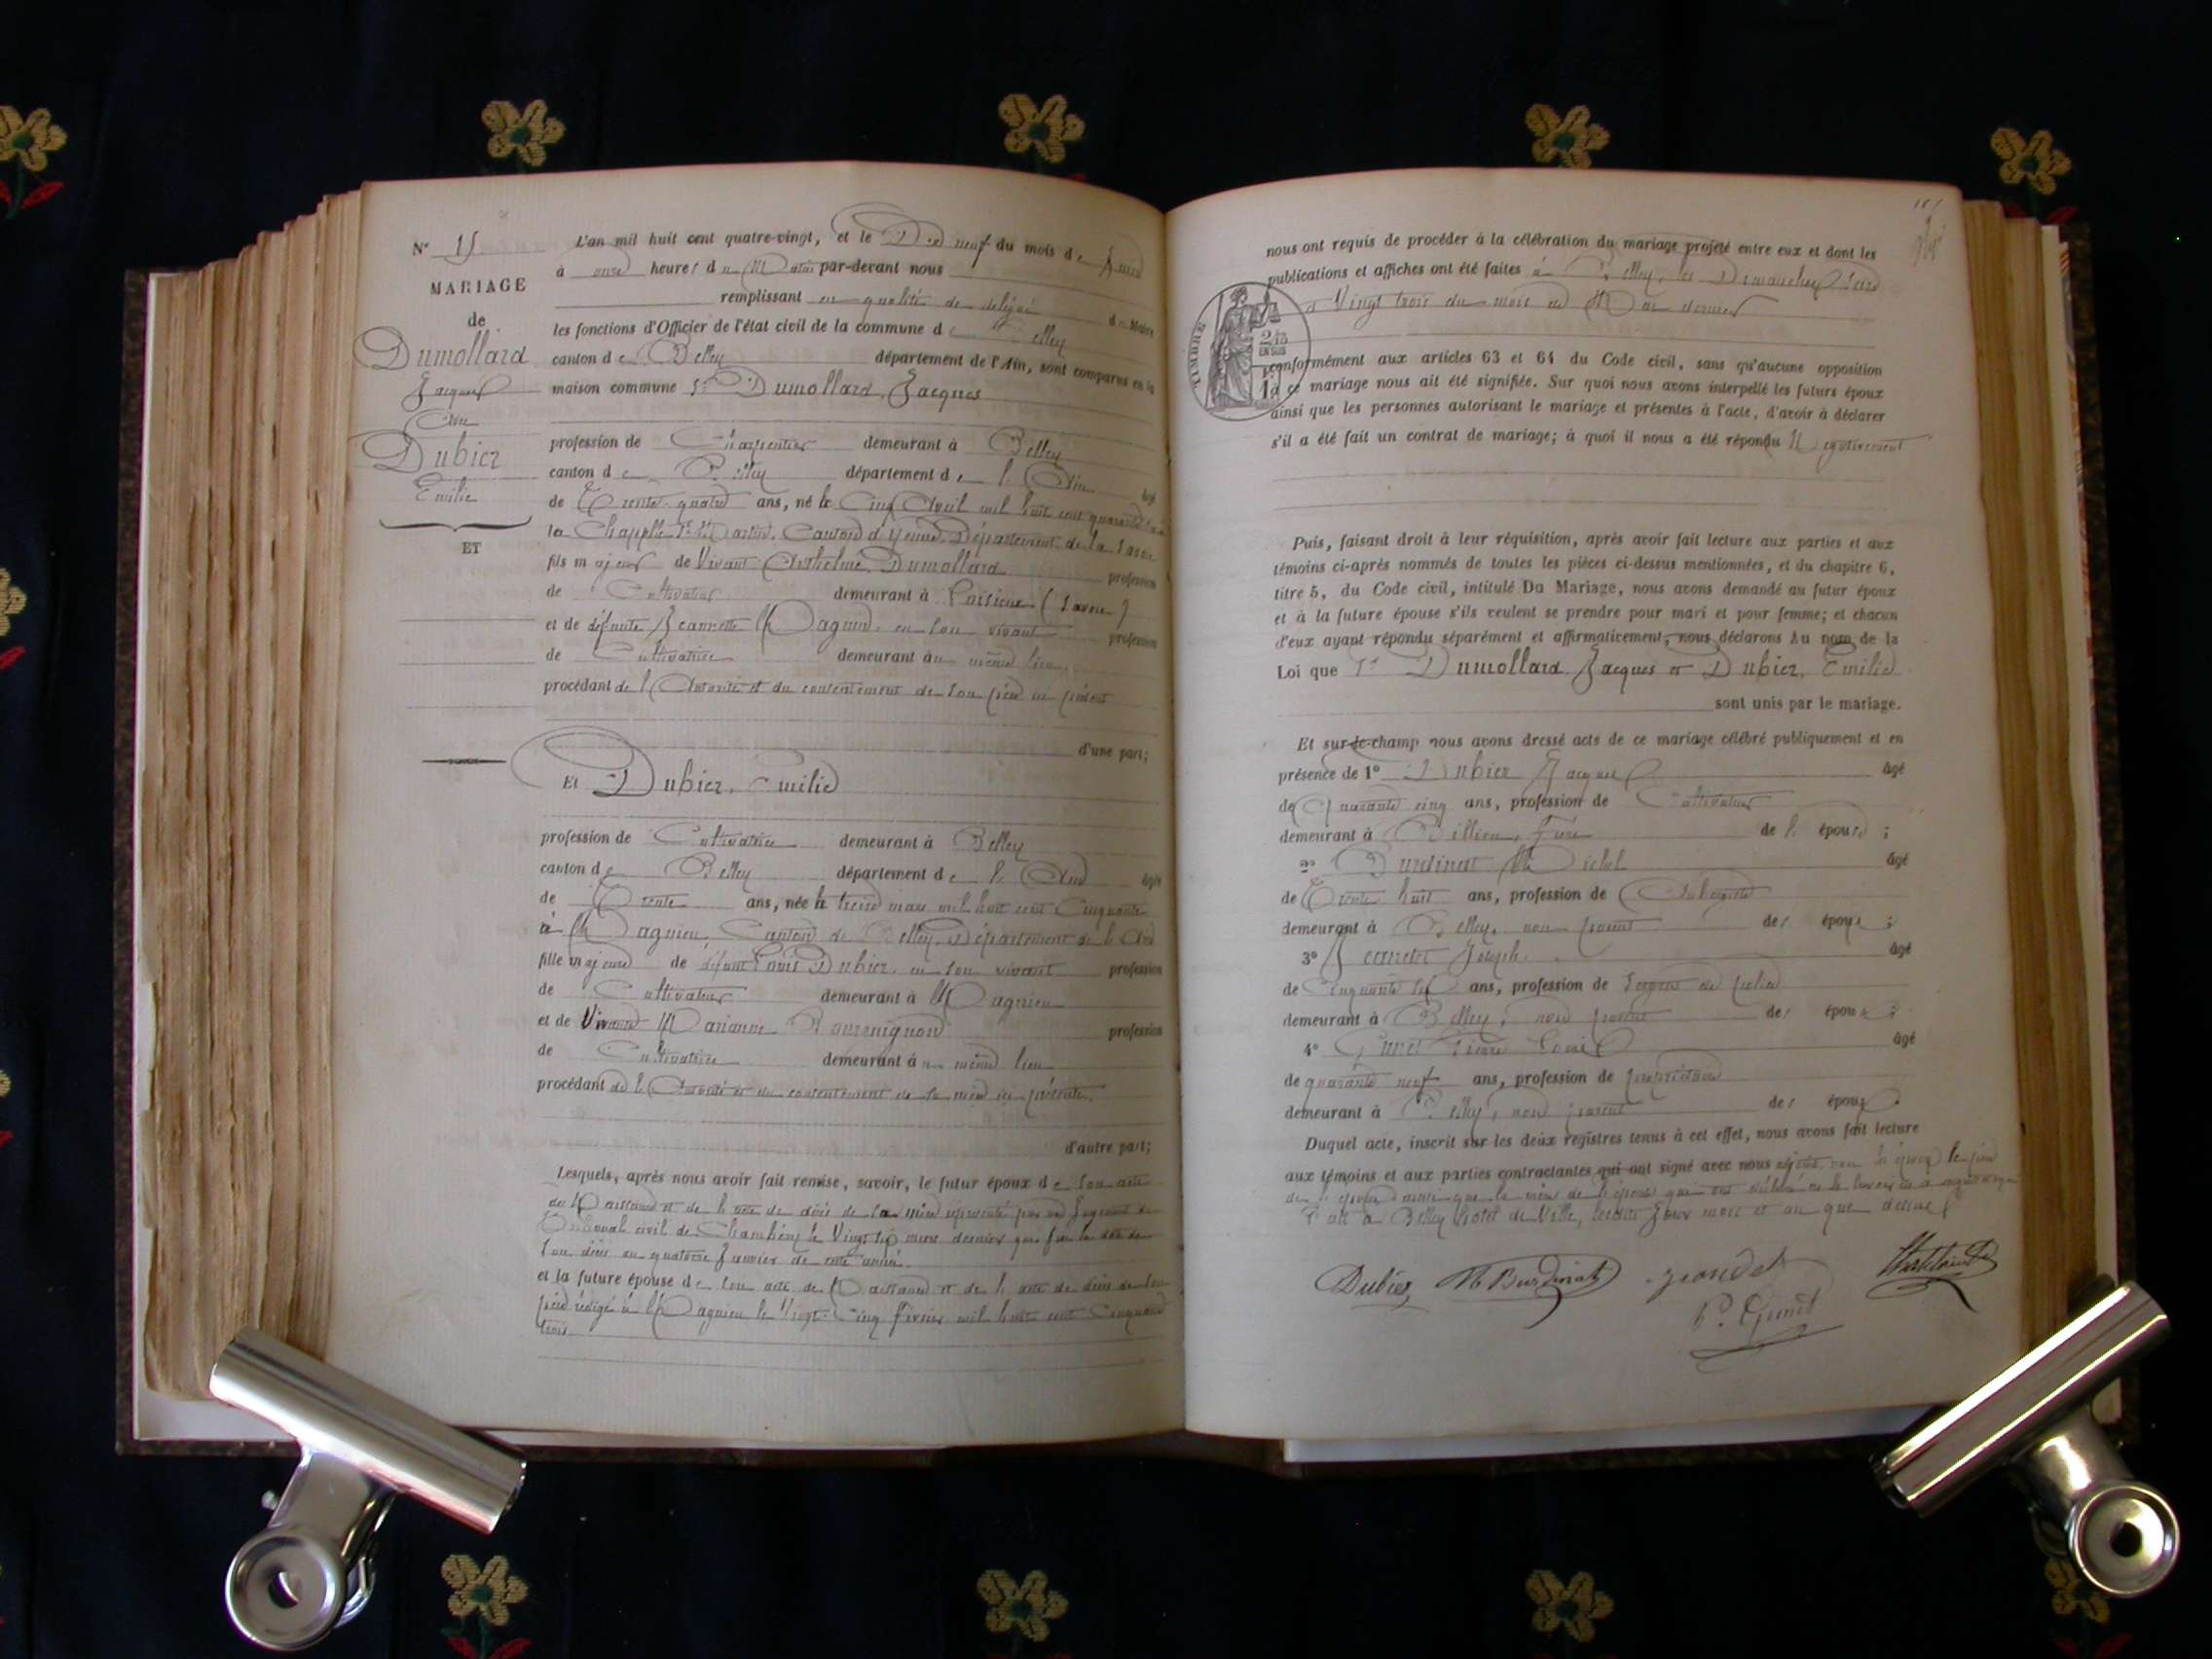 N° 15
MARIAGE
de
Dumollard
Jacques
Avec
Dubier
Emilie
ET
L'an mil huit cent quatre-vingt, et le Dix neuf du mois de Juin
à onze heures du Matin par-devant nous
remplissant en qualité de délégué du Maire
les fonctions d'Officier de l'état civil de la commune de Belley
canton de Belley département de l'Ain, sont comparus en la
maison commune 1° Dumollard, Jacques
profession de Charpentier demeurant à Belley
canton de Belley département de l'Ain âgé
de Trente-quatre ans, né le Cinq Avril mil huit cent quarante
la Chapelle St Martin, Canton d'Yenne, Département de la Savoie
fils majeur de Vivant Anthelme Dumollard profession
de Cultivateur demeurant à (Savoie)
et de défunte Jeannette Magnin, en son vivant profession
de Cultivatrice demeurant au même lieu
procédant de l'Autorité et du consentement de son père ici présent
d'une part;
Et Dubier, Emilie
profession de Cultivatrice demeurant à Belley
canton de Belley département de l'Ain âgée
de Trente ans, née le treize mars mil huit cent Cinquante
à Magnieu, Canton de Belley, Département de l'Ain
fille majeure de défunt Louis Dubier, en son vivant profession
de Cultivateur demeurant à Magnieu
et de Vivante Marianne profession
de Cultivatrice demeurant au même lieu
procédant de l'Autorité et du consentement de sa mère ici présente.
d'autre part;
Lesquels, après nous avoir fait remise, savoir, le futur époux de son acte
de Naissance et de l'acte de décès de sa mère représenté par un Jugement du
Tribunal civil de Chambéry le Vingt six mars dernier que fixe la date de
son décès au quatorze Janvier de cette année.
et la future épouse de son acte de Naissance et de l'acte de décès de son
père rédigé à Magnieu le Vingt-Cinq février mil huit cent Cinquante
trois
nous ont requis de procéder à la célébration du mariage projeté entre eux et dont les
publications et affiches ont été faites à Belley, les Dimanches Seize
et Vingt trois du mois de Mai dernier
TIMBRE
conformément aux articles 63 et 64 du Code civil, sans qu'aucune opposition
à ce mariage nous ait été signifiée. Sur quoi nous avons interpellé les futurs époux
ainsi que les personnes autorisant le mariage et présentes à l'acte, d'avoir à déclarer
s'il a été fait un contrat de mariage; à quoi il nous a été répondu Négativement
Puis, faisant droit à leur réquisition, après avoir fait lecture aux parties et aux
témoins ci-après nommés de toutes les pièces ci-dessus mentionnées, et du chapitre 6,
titre 5, du Code civil, intitulé Du Mariage, nous avons demandé au futur époux
et à la future épouse s'ils veulent se prendre pour mari et pour femme; et chacun
d'eux ayant répondu séparément et affirmativement, nous déclarons Au nom de la
Loi que Dumollard Jacques et Dubier, Emilie
sont unis par le mariage.
Et sur-le-champ nous avons dressé acte de ce mariage célébré publiquement et en
présence de 1° Dubier Jacques âgé
de Quarante cinq ans, profession de Cultivateur
demeurant à Billieu, frère de l'épouse;
2° Burdinat Michel âgé
de Trente huit ans, profession de Aubergiste
demeurant à Belley, non parent des époux;
3° Joseph âgé
de Cinquante six ans, profession de Sergent de police
demeurant à Belley, non parent des époux;
4° Pierre Louis âgé
de quarante neuf ans, profession de propriétaire
demeurant à Belley, non parent des époux.
Duquel acte, inscrit sur les deux registres tenus à cet effet, nous avons fait lecture
aux témoins et aux parties contractantes qui ont signé avec nous le père
de l'époux ainsi que la mère de l'épouse qui ont déclaré ne le savoir de ce
Fait à Belley Hotel de Ville, lesdits Jour mois et an que dessus
Dubier M Burdinat